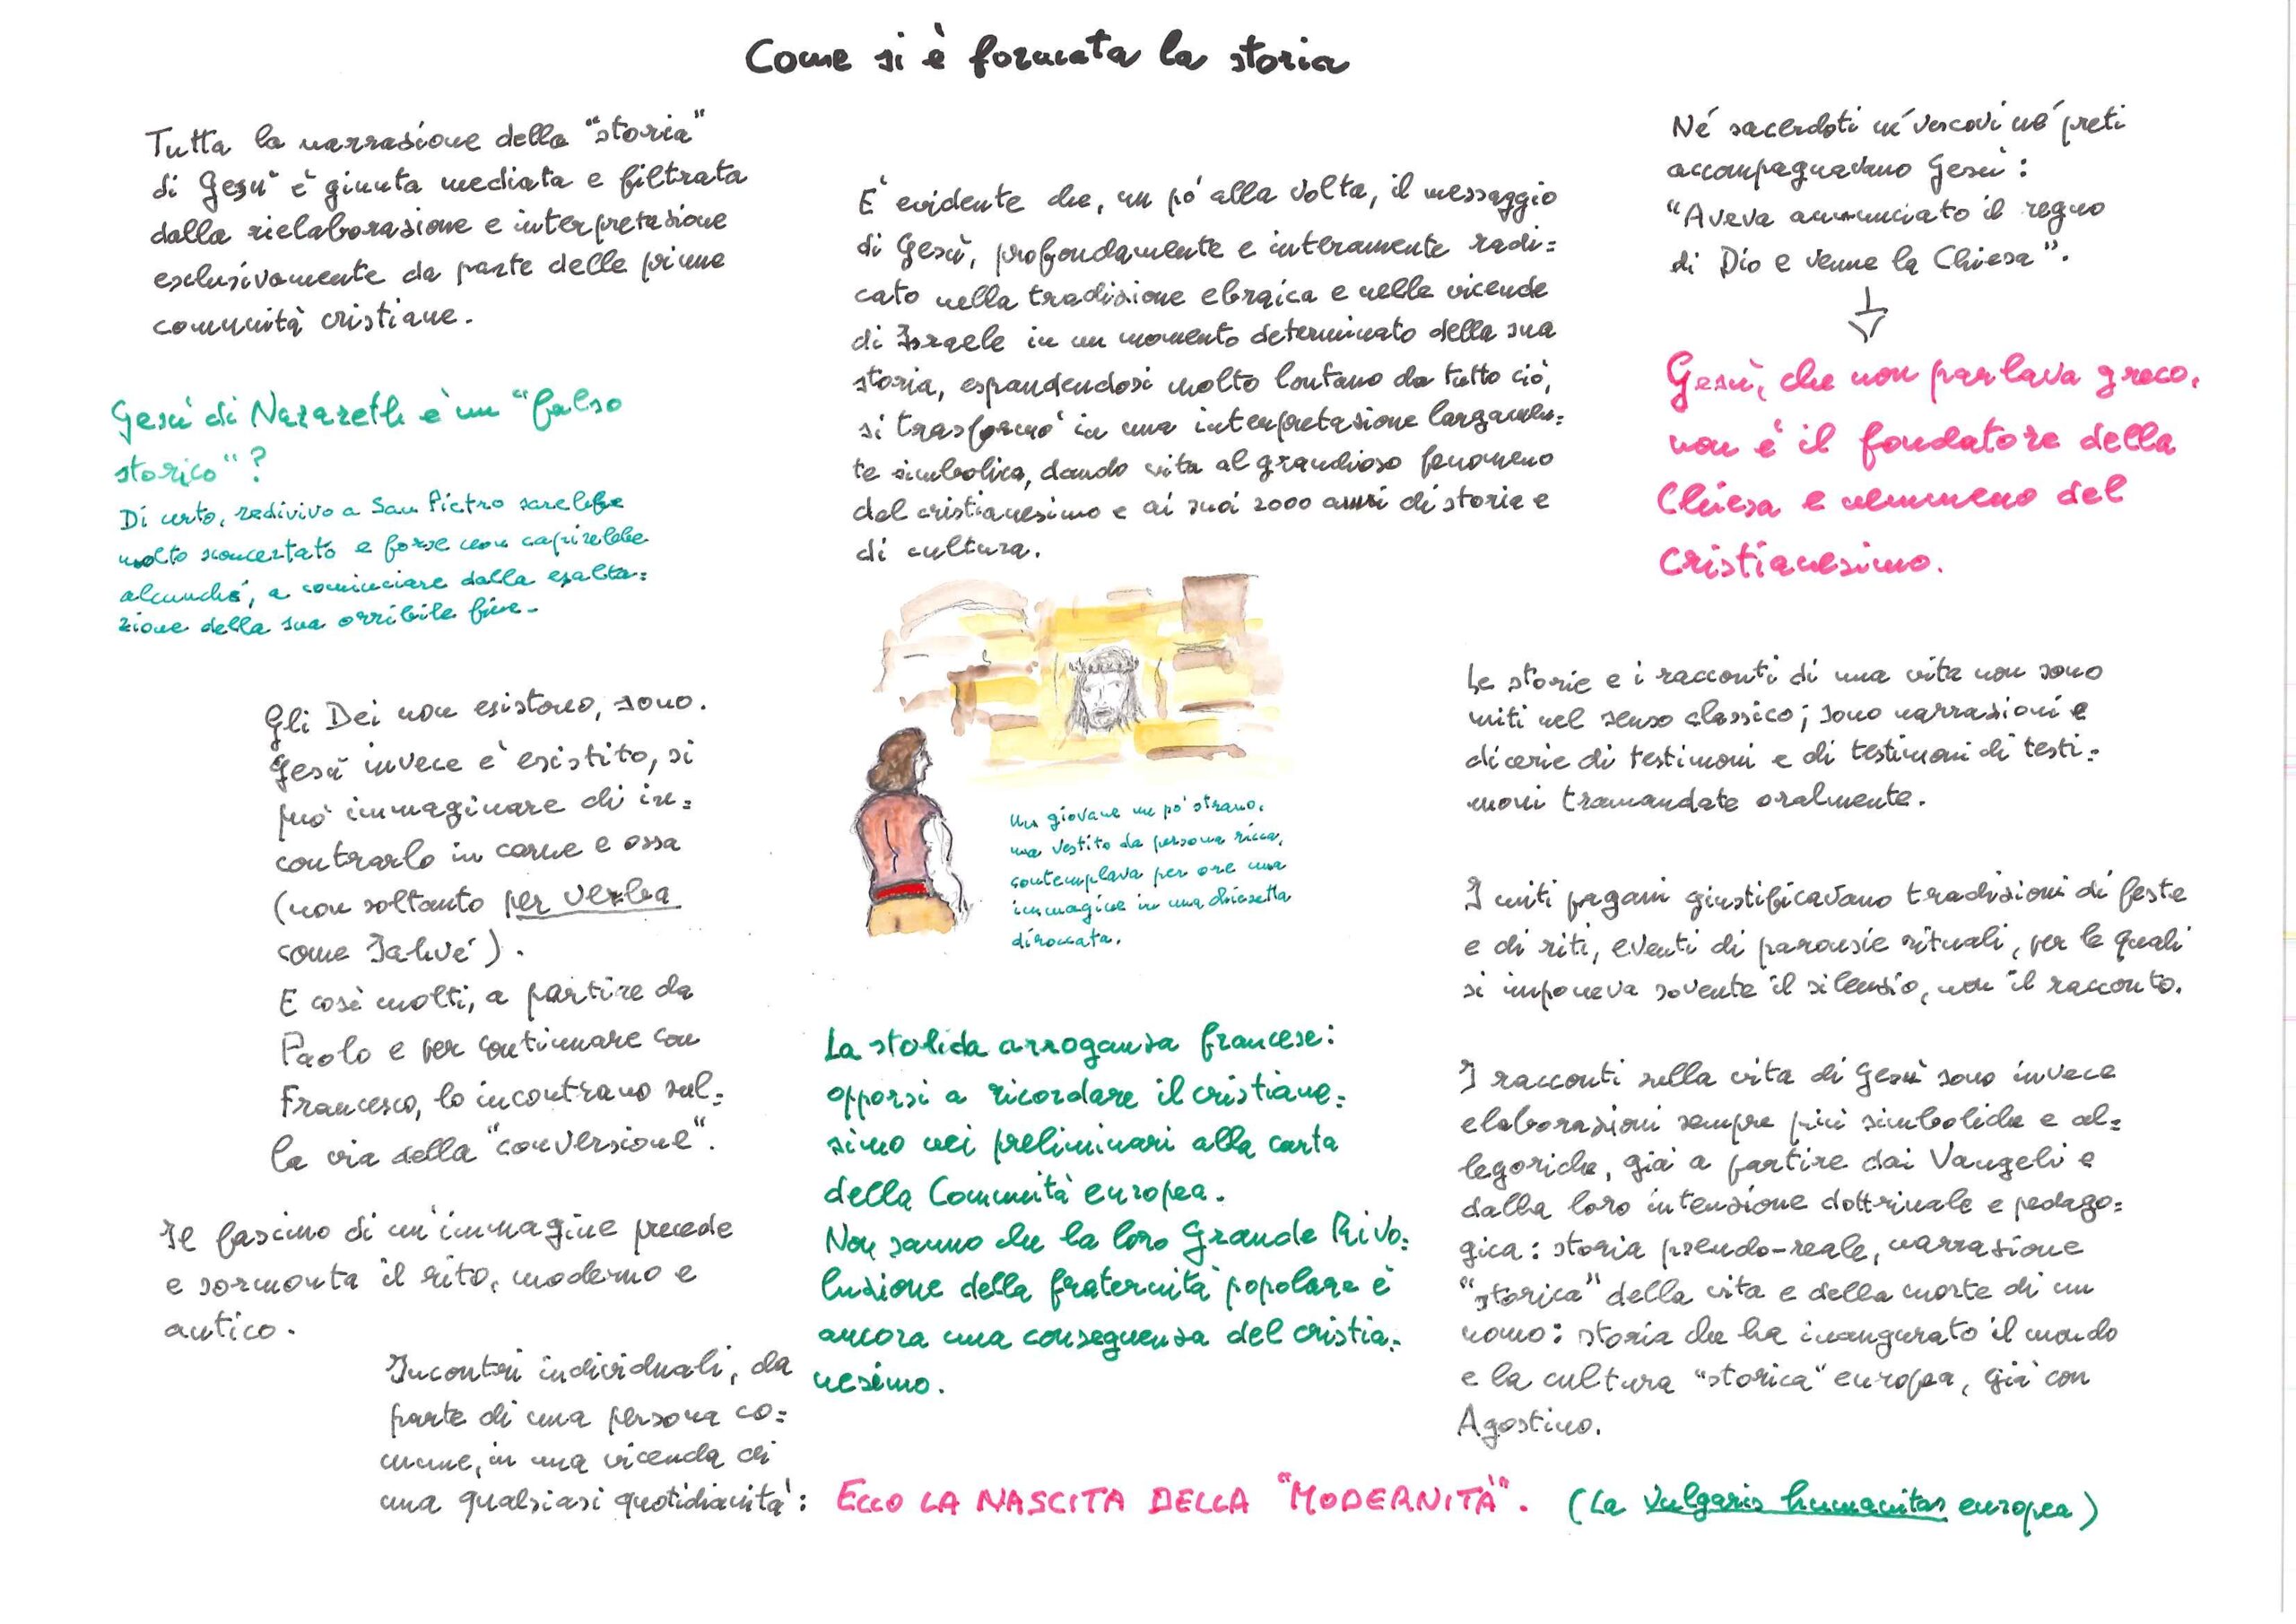 Come si è formata la storia
Tutta la narrazione della "storia"
di Gesù è giunta mediata e filtrata
dalla rielaborazione e interpretazione
esclusivamente da parte delle prime
comunità cristiane.
Gesù di Nazareth è un "falso
storico"?
Di certo, redivivo a San Pietro sarebbe
molto sconcertato e forse non capirebbe
alcunché, a cominciare dalla esalta=
zione della sua orribile fine.
Gli Dei non esistono, sono.
Gesù invece è esistito, si
può immaginare di in=
contrarlo in carne e ossa
(non soltanto per verba
come Jahvé).
E così molti, a partire da
Paolo e per continuare con
Francesco, lo incontrano sul=
la via della "conversione".
Il fascino di un'immagine precede
e sormonta il rito, moderno e
antico.
Incontri individuali, da
parte di una persona co=
mune, in una vicenda di
una qualsiasi quotidianità:
È evidente che, un pò alla volta, il messaggio
di Gesù, profondamente e interamente radi=
cato nella tradizione ebraica e nelle vicende
di Israele in un momento determinato della sua
storia, espandendosi molto lontano da tutto ciò,
si trasformò in una interpretazione largamen=
te simbolica, dando vita al grandioso fenomeno
del cristianesimo e ai suoi 2000 anni di storia e
di cultura.
Un giovane un po' strano,
ma vestito da persona ricca,
contemplava per ore una
immagine in una chiesetta
diroccata.
La stolida arroganza francese:
opporsi a ricordare il cristiane=
simo nei preliminari alla carta
della Comunità europea.
Non sanno che la loro Grande Rivo=
luzione della fraternità popolare è
ancora una conseguenza del cristia=
nesimo.
ECCO LA NASCITA DELLA "MODERNITÀ".
Né sacerdoti né vescovi né preti
accompagnavano Gesù:
"Aveva annunciato il regno
di Dio e venne la Chiesa".
Gesù, che non parlava greco,
non è il fondatore della
Chiesa e nemmeno del
cristianesimo.
Le storie e i racconti di una vita non sono
miti nel senso classico; sono narrazioni e
dicerie di testimoni e di testimoni di testi=
moni tramandate oralmente.
I miti pagani giustificavano tradizioni di feste
e di riti, eventi di parousie rituali, per le quali
si imponeva sovente il silenzio, non il racconto.
I racconti sulla vita di Gesù sono invece
elaborazioni sempre più simboliche e al=
legoriche, già a partire dai Vangeli e
dalla loro intenzione dottrinale e pedago=
gica: storia pseudo-reale, narrazione
"storica" della vita e della morte di un
uomo: storia che ha inaugurato il mondo
e la cultura "storica" europea, già con
Agostino.
(La vulgaris humanitas europea)